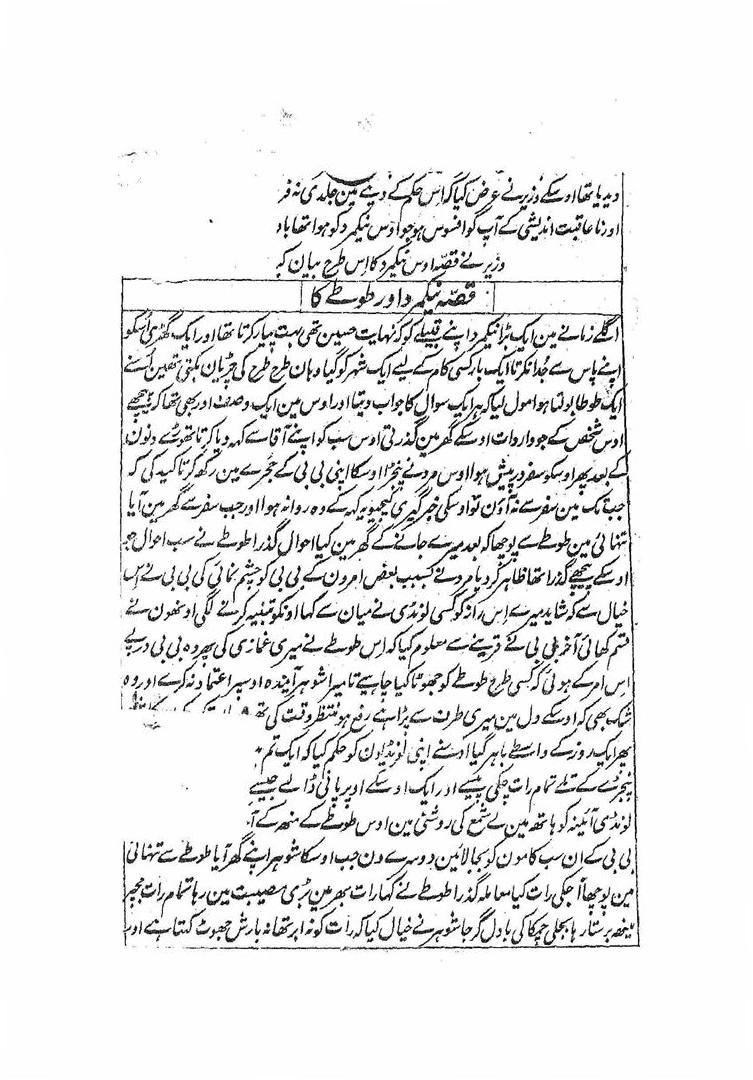 دیدیا تھا اوسکے وزیر نے عرض کیا کہ اس حکم کے دینے مین جلدی نہ فر
اور نا عاقبت اندیشی کے آپ کو افسوس ہو جو اوس نیکمرد کو ہوا تھا باد
وزیر نے قصّہ اوس نیکمرد کا اس طرح بیان کیہ
قصّہ نیکمرد اور طوطے کا
اگلے زمانے مین ایک بڑا نیکمرد اپنے قبیلے کو کہ نہایت حسین تھی بہت پیار کرتا تھا اور ایک گھڑی اُسکو
اپنے پاس سے جُدا نکرتا ایک بار کسی کام کے لیے ایک شہر کو گیا وہان طرح طرح کی چڑیان بکتی تھین اُسنے
ایک طوطا بولتا ہوا مول لیا کہ ہر ایک سوال کا جواب دیتا اور اوس مین ایک وصف اور بھی تھا کہ پیچھے
اوس شخص کے جو واردات اوسکے گھر مین گذرتی اوس سب کو اپنے آقا سے کہہ دیا کرتا تھوڑے دنون
کے بعد پھر اوسکو سفر درپیش ہوا اوس مرد نے پنجڑا اوسکا اپنی بی بی کے حجرے مین رکھ کر تاکید کی کہ
جب تک مین سفر سے نہ آؤن تو اوسکی خبر گیری کیجیو یہ کہہ کے وہ روانہ ہوا اور جب سفر سے گھر مین آیا
تنہائی مین طوطے سے پوچھا کہ بعد میرے جانے کے گھر مین کیا احوال گذرا طوطے نے سب احوال جو
اوسکے پیچھے گذرا تھا ظاہر کر دیا مرد نے بسبب بعض امرون کے بی بی کو چشم نمائی کی بی بی نے اِس
خیال سے کہ شاید میرے اِس راز کو کسی لونڈی نے میان سے کہا اونکو تنبیہ کرنے لگی اونھون نے
قسم کھائی آخر بی بی نے قرینے سے معلوم کیا کہ اس طوطے نے میری غمازی کی پھر وہ بی بی درپے
اِس امر کے ہوئی کہ کسی طرح طوطے کو جھوٹا کیا چاہیے تا میرا شوہر آیندہ اوسپر اعتماد نہ کرے اور وہ
شک بھی کہ اوسکے دل مین میری طرف سے پڑا ہے رفع ہو منتظر وقت کی تھ
پھر ایک روز کے واسطے باہر گیا اوسنے اپنی لونڈیون کو حکم کیا کہ ایک تم
پنجڑے کے تلے تمام رات چکی پیسے اور ایک اوسکے اوپر پانی ڈالے جیسے
لونڈی آئینہ کو ہاتھ مین لے شمع کی روشنی مین اوس طوطے کے منھ کے آ
بی بی کے ان سب کامون کو بجا لائین دوسرے دن جب اوسکا شوہر اپنے گھر آیا طوطے سے تنہائی
مین پوچھا آجکی رات کیا معاملہ گذرا طوطے نے کہا رات بھر مین بڑی مصیبت مین رہا تمام رات مجھپر
مینھ برستا رہا بجلی چمکا کی بادل گرجا شوہر نے خیال کیا کہ رات کو نہ ابر تھا نہ بارش جھوٹ کہتا ہے اور